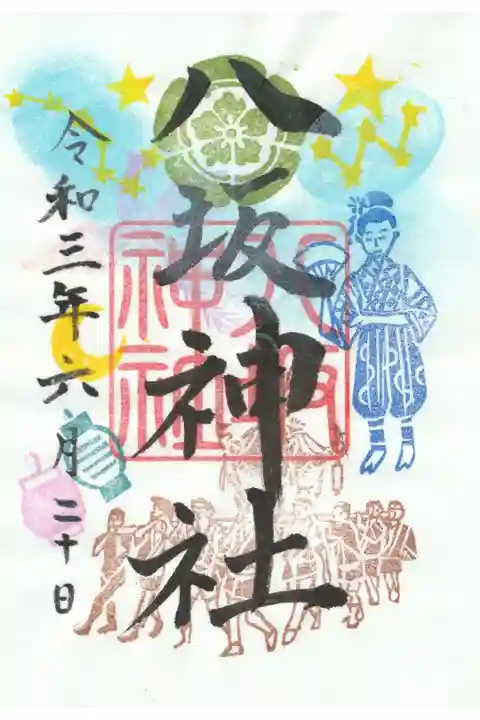 八坂神社
令和三年六月二十日
八坂神社